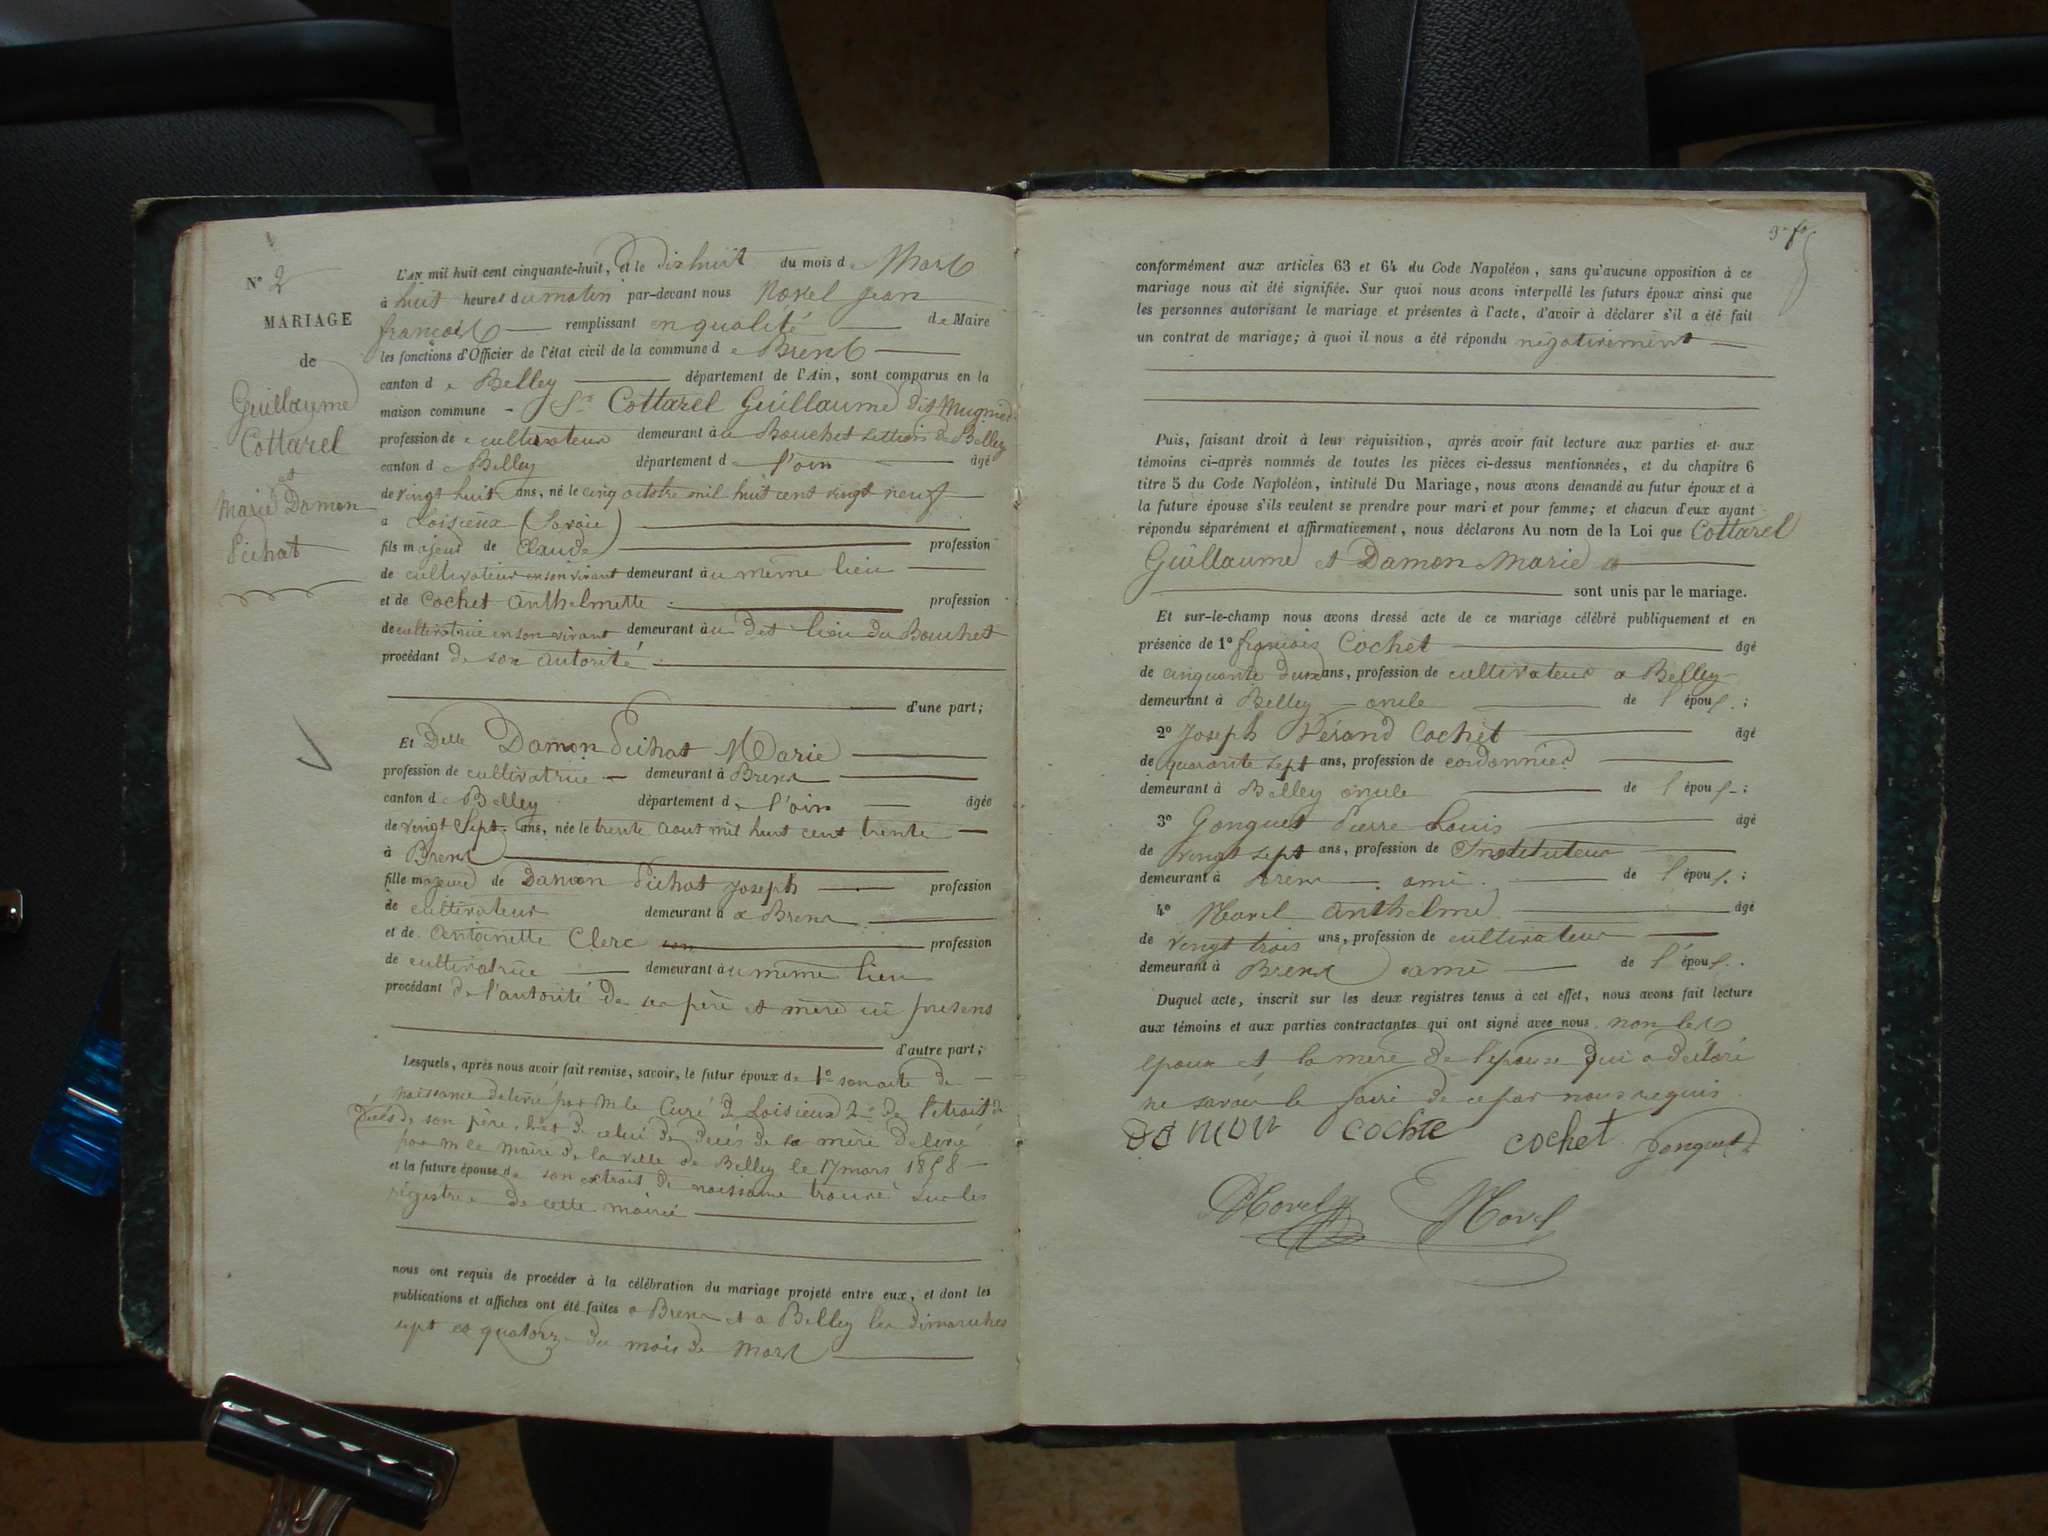 N° 2
MARIAGE
de
Guillaume
Cottarel
et
Marie Damon
Pichat
L'AN mil huit cent cinquante-huit, et le dixhuit du mois de Mars
à huit heures du matin par-devant nous Morel Jean
françois remplissant en qualité de Maire
les fonctions d'Officier de l'état civil de la commune de Brens
canton de Belley département de l'Ain, sont comparus en la
maison commune Sr Cottarel Guillaume dit Mugnier
profession de cultivateur demeurant au Bouchet de Belley
canton de Belley département de l'ain âgé
de vingt huit ans, né le cinq octobre mil huit cent vingt neuf
à Loisieux (Savoie)
fils majeur de Claude profession
de cultivateur en son vivant demeurant au même lieu
et de Cochet Anthelmette profession
de cultivatrice en son vivant demeurant au dit lieu du Bouchet
procédant de son autorité
d'une part;
Et Delle Damon Pichat Marie
profession de cultivatrice demeurant à Brens
canton de Belley département de l'ain âgée
de vingt Sept ans, née le trente aout mil huit cent trente
à Brens
fille majeure de Damon Pichat Joseph profession
de cultivateur demeurant à a Brens
et de Antoinette Clerc profession
de cultivatrice demeurant au même lieu
procédant de l'autorité de ses père et mère ici présens
d'autre part;
Lesquels, après nous avoir fait remise, savoir, le futur époux de 1° son acte de
naissance délivré par Mr le Curé de Loisieux 2° de l'extrait de
décès de son père, et de celui de décès de sa mère délivré
par Mr le Maire de la ville de Belley le 17 mars 1858
et la future épouse de son extrait de naissance trouvé sur les
registres de cette mairie
nous ont requis de procéder à la célébration du mariage projeté entre eux, et dont les
publications et affiches ont été faites a Brens et a Belley les dimanches
sept et quatorze du mois de Mars
conformément aux articles 63 et 64 du Code Napoléon, sans qu'aucune opposition à ce
mariage nous ait été signifiée. Sur quoi nous avons interpellé les futurs époux ainsi que
les personnes autorisant le mariage et présentes à l'acte, d'avoir à déclarer s'il a été fait
un contrat de mariage; à quoi il nous a été répondu négativement
Puis, faisant droit à leur réquisition, après avoir fait lecture aux parties et aux
témoins ci-après nommés de toutes les pièces ci-dessus mentionnées, et du chapitre 6
titre 5 du Code Napoléon, intitulé Du Mariage, nous avons demandé au futur époux et à
la future épouse s'ils veulent se prendre pour mari et pour femme; et chacun d'eux ayant
répondu séparément et affirmativement, nous déclarons Au nom de la Loi que Cottarel
Guillaume et Damon Marie
sont unis par le mariage.
Et sur-le-champ nous avons dressé acte de ce mariage célébré publiquement et en
présence de 1° françois Cochet âgé
de cinquante deux ans, profession de cultivateur a Belley
demeurant à Belley oncle de l'épous ;
2° Joseph Cochet âgé
de quarante sept ans, profession de cordonnier
demeurant à Belley oncle de l'épous ;
3° Gonguet Pierre Louis âgé
de vingt sept ans, profession de Instituteur
demeurant à Brens ami de l'épous ;
4° Morel Anthelme âgé
de vingt trois ans, profession de cultivateur
demeurant à Brens ami de l'épous .
Duquel acte, inscrit sur les deux registres tenus à cet effet, nous avons fait lecture
aux témoins et aux parties contractantes qui ont signé avec nous non les
époux et la mère de l'épouse qui a déclaré
ne savoir le faire de ce par nous requis
damon cochte cochet Gonguet
Morel Morel